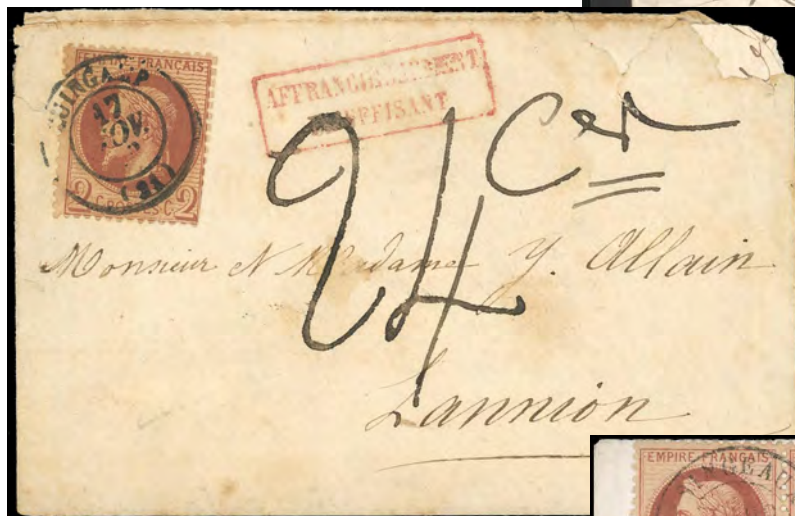 EMPIRE FRANÇAIS
GUINGAMP
17
NOV.
(21)
2 C. POSTES C. 2
AFFRANCHISSEMENT
INSUFFISANT
24 Cen
Monsieur et Madame Y. Allain
Lannion
EMPIRE FRANÇAIS